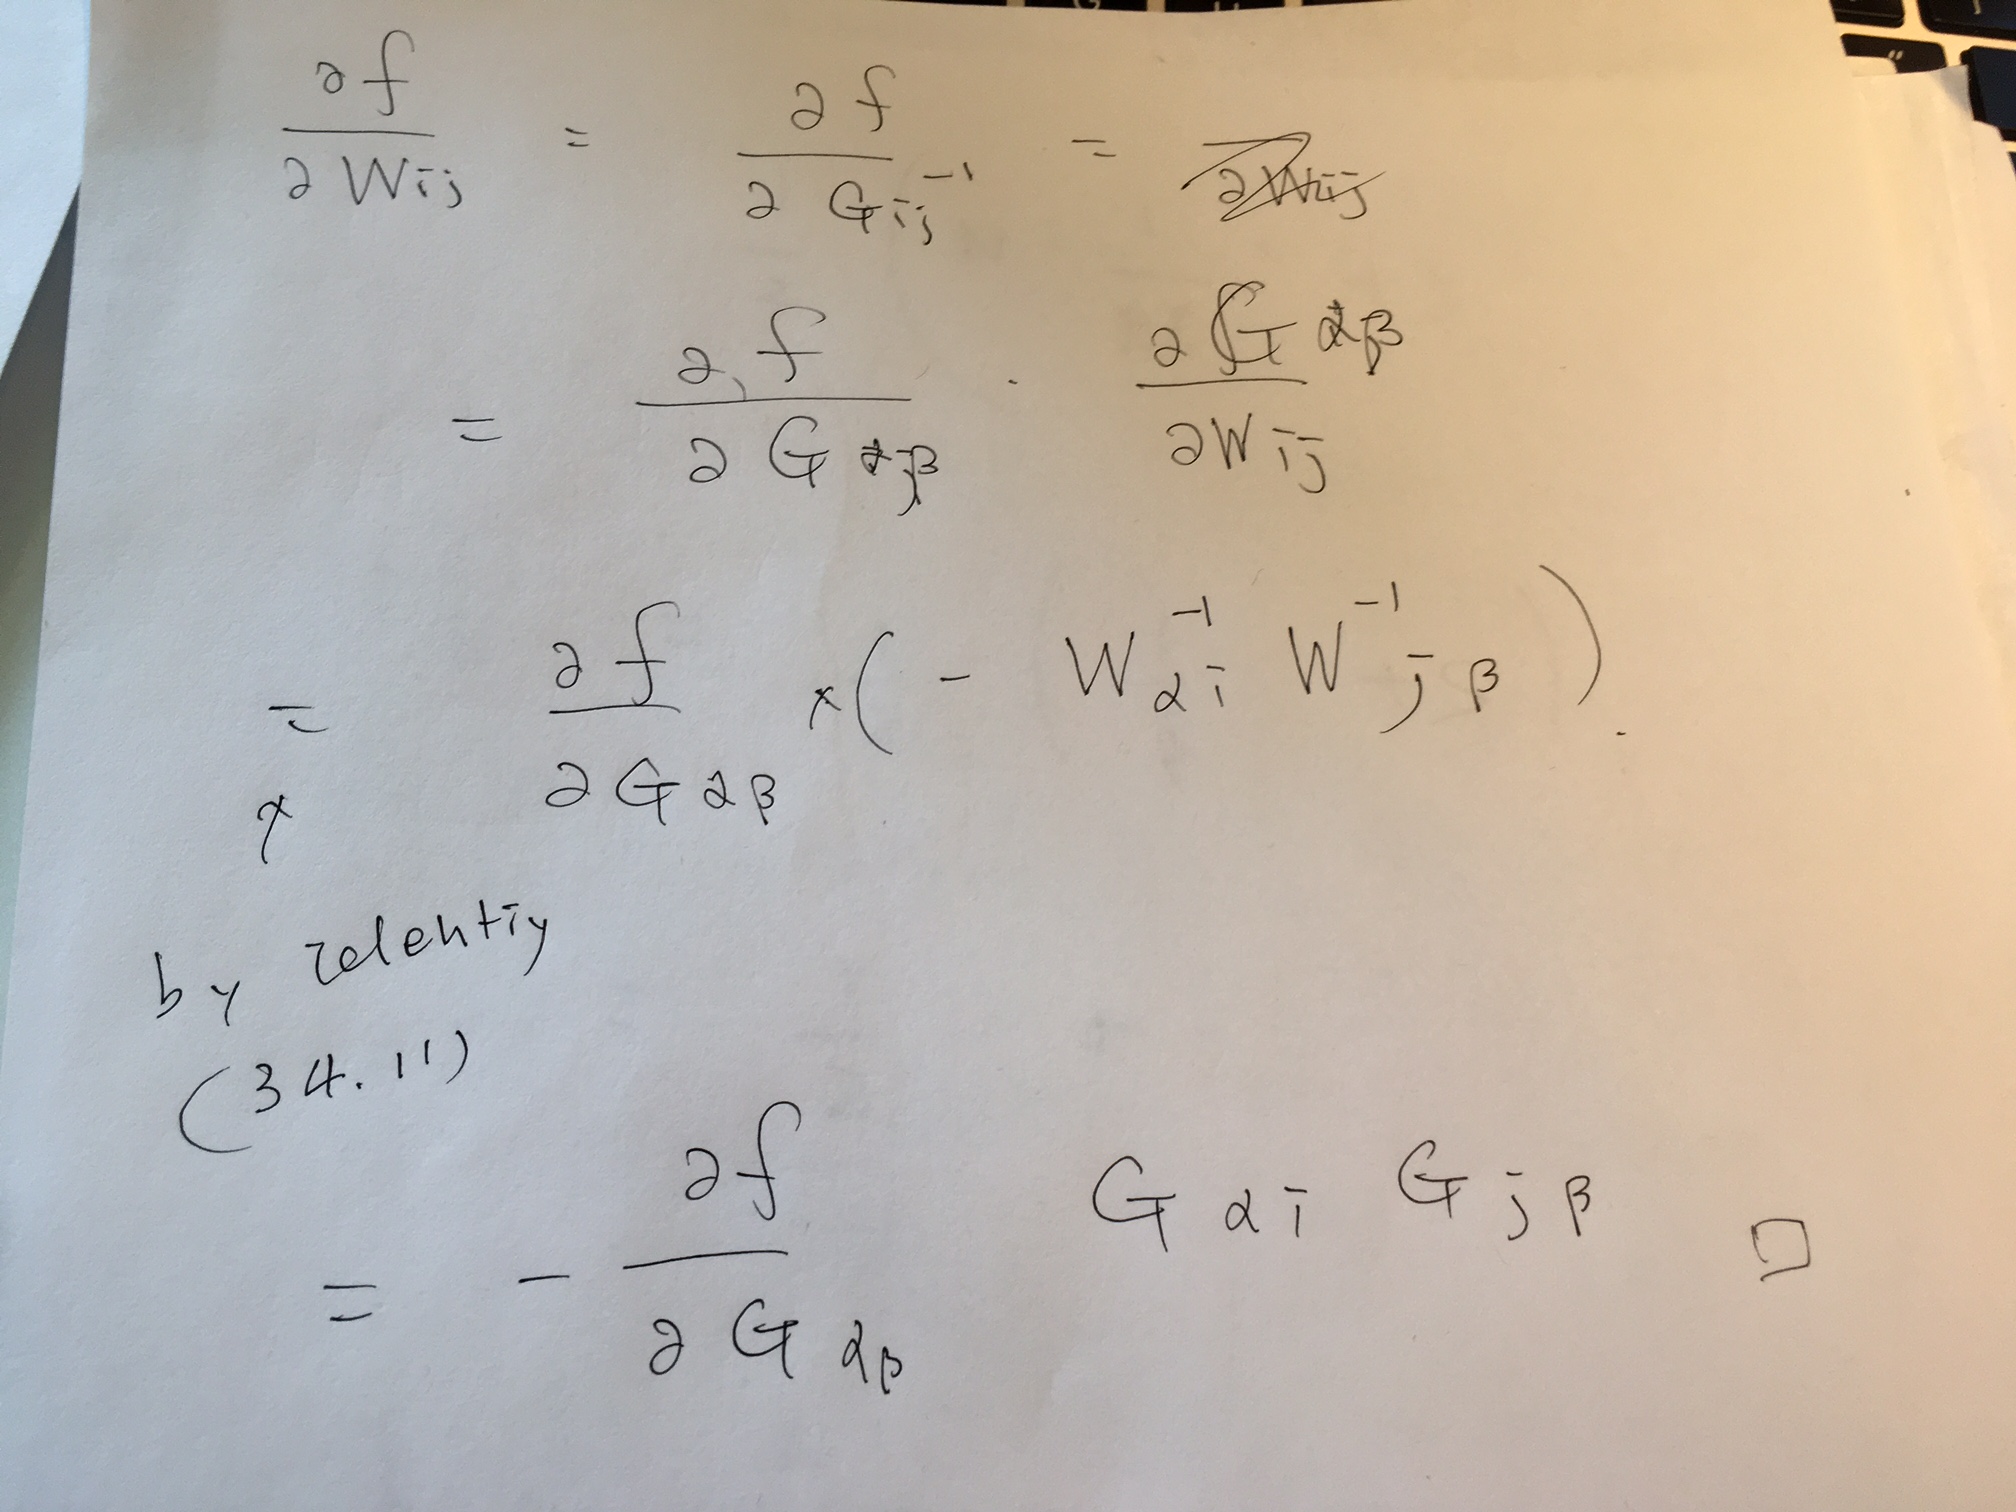 ∂f/∂W_{ij} = ∂f/∂G_{ij}^{-1} = ∂W_{ij}
= ∂f/∂G_{αβ} · ∂G_{αβ}/∂W_{ij}
= ∂f/∂G_{αβ} × ( - W_{αi}^{-1} W_{jβ}^{-1} ) .
by identiy
(34.11)
= - ∂f/∂G_{αβ} G_{αi} G_{jβ} □